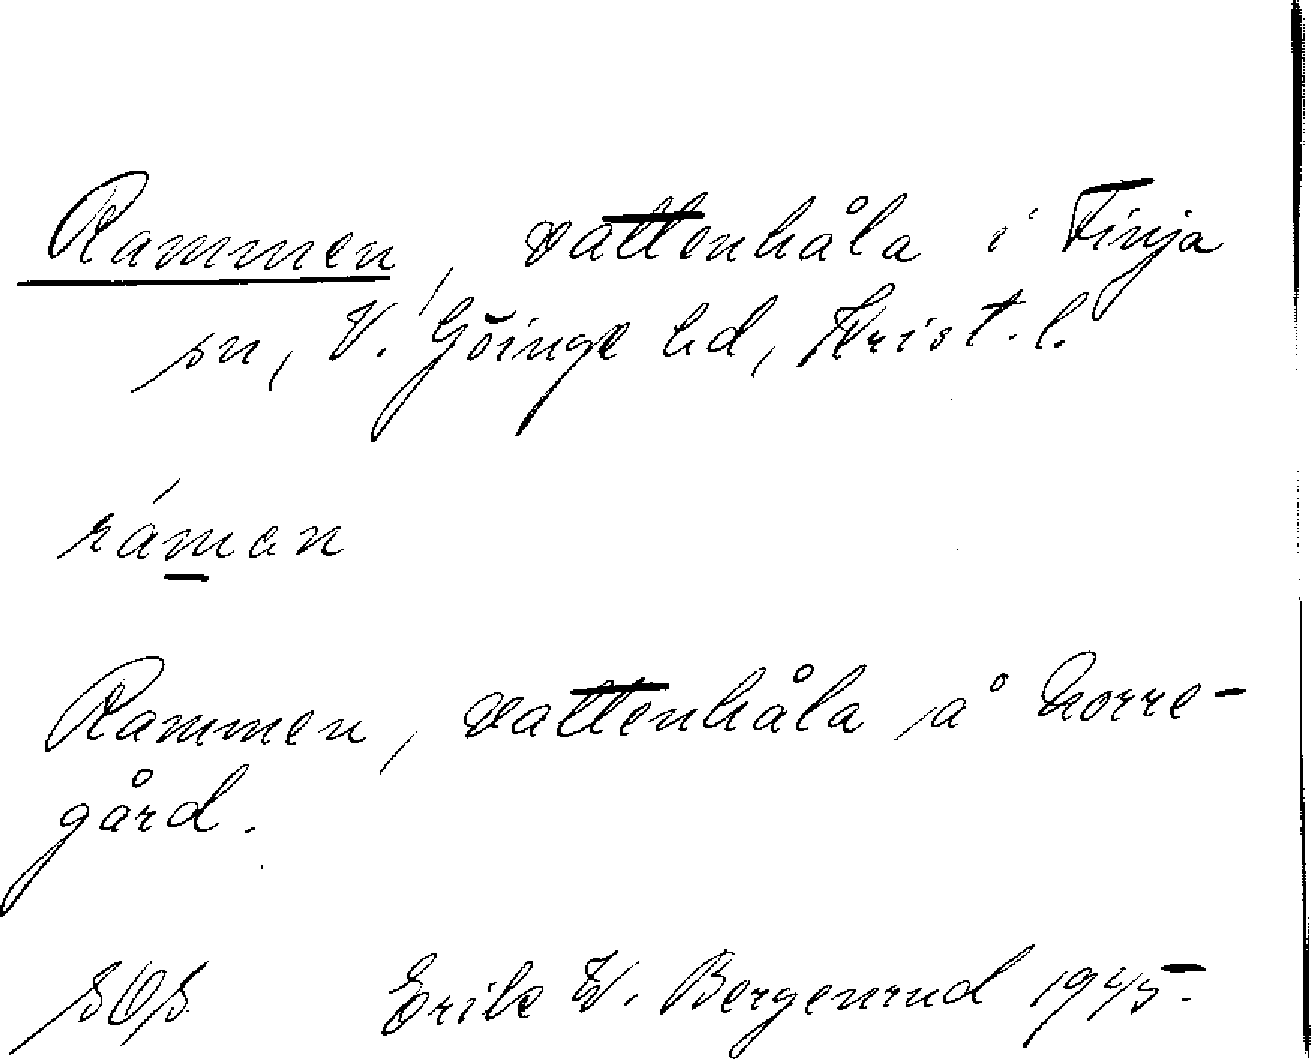 Rammen, vattenhåla i Finja
sn, V. Göinge hd, Krist. l.
ráman
Rammen, vattenhåla å Norre-
gård.
SOS Erik W. Bergenrud 1945.